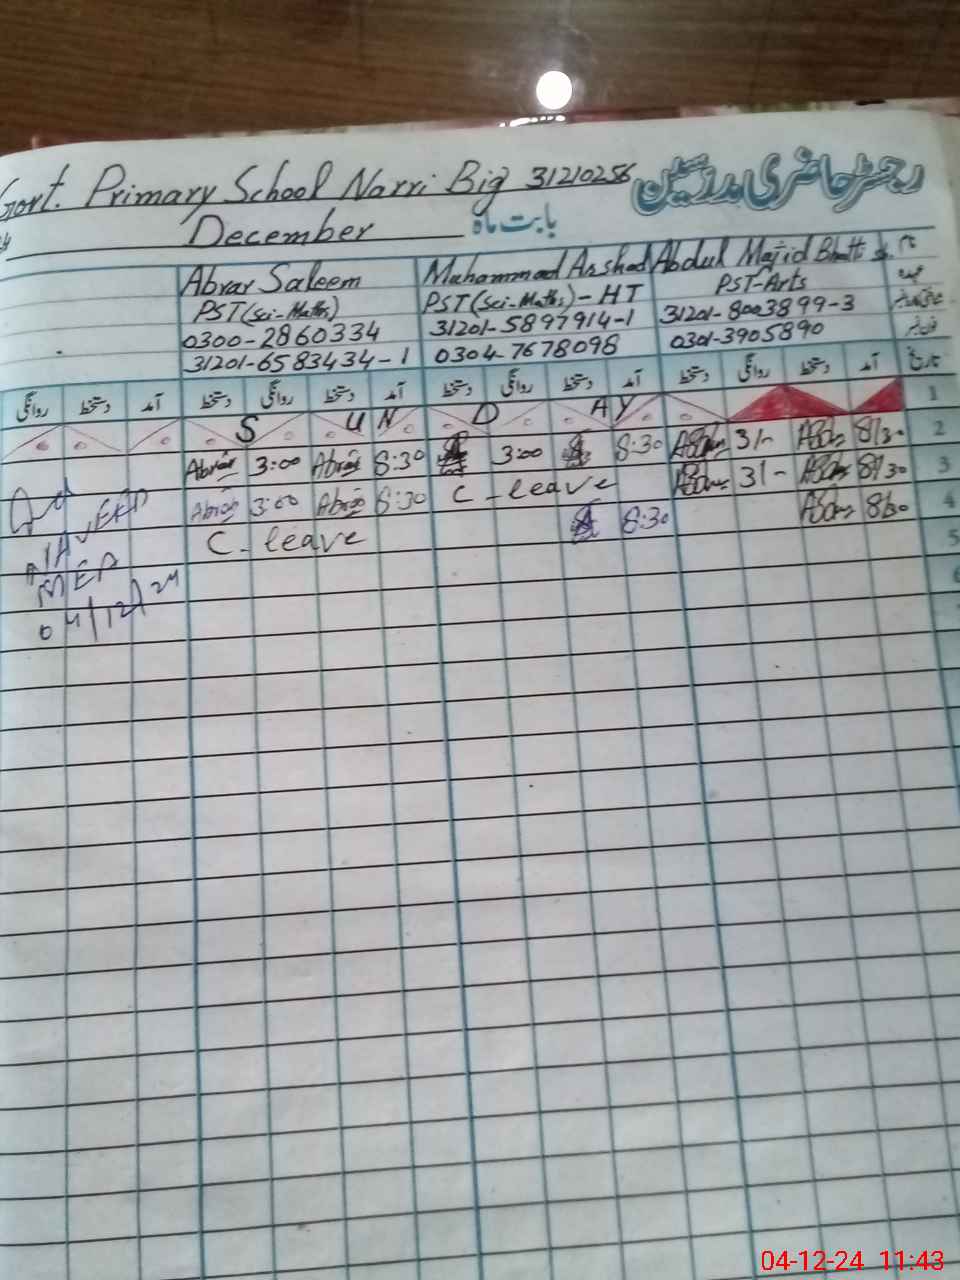 Govt. Primary School Narri Big 31210256 رجسٹر حاضری مدرسین
December بابت ماہ
Abrar Saleem Muhammad Arshad Abdul Majid Bhatti نام
PST (Sci-Maths) PST (Sci-Maths) - HT PST-Arts عہدہ
0300-2860334 31201-5897914-1 31201-8003899-3
31201-6583434-1 0304-7678098 0301-3905890
روانگی دستخط آمد دستخط روانگی دستخط آمد دستخط روانگی دستخط آمد دستخط روانگی دستخط آمد تاریخ
S U N D A Y 1
Abrar 3:00 Abrar 8:30 3:00 8:30 3/- 8/30 2
Abrar 3:00 Abrar 8:30 C - leave 3/- 8/30 3
C - leave 8:30 8/30 4
5
6
7
MEA
04/12/24
04-12-24 11:43